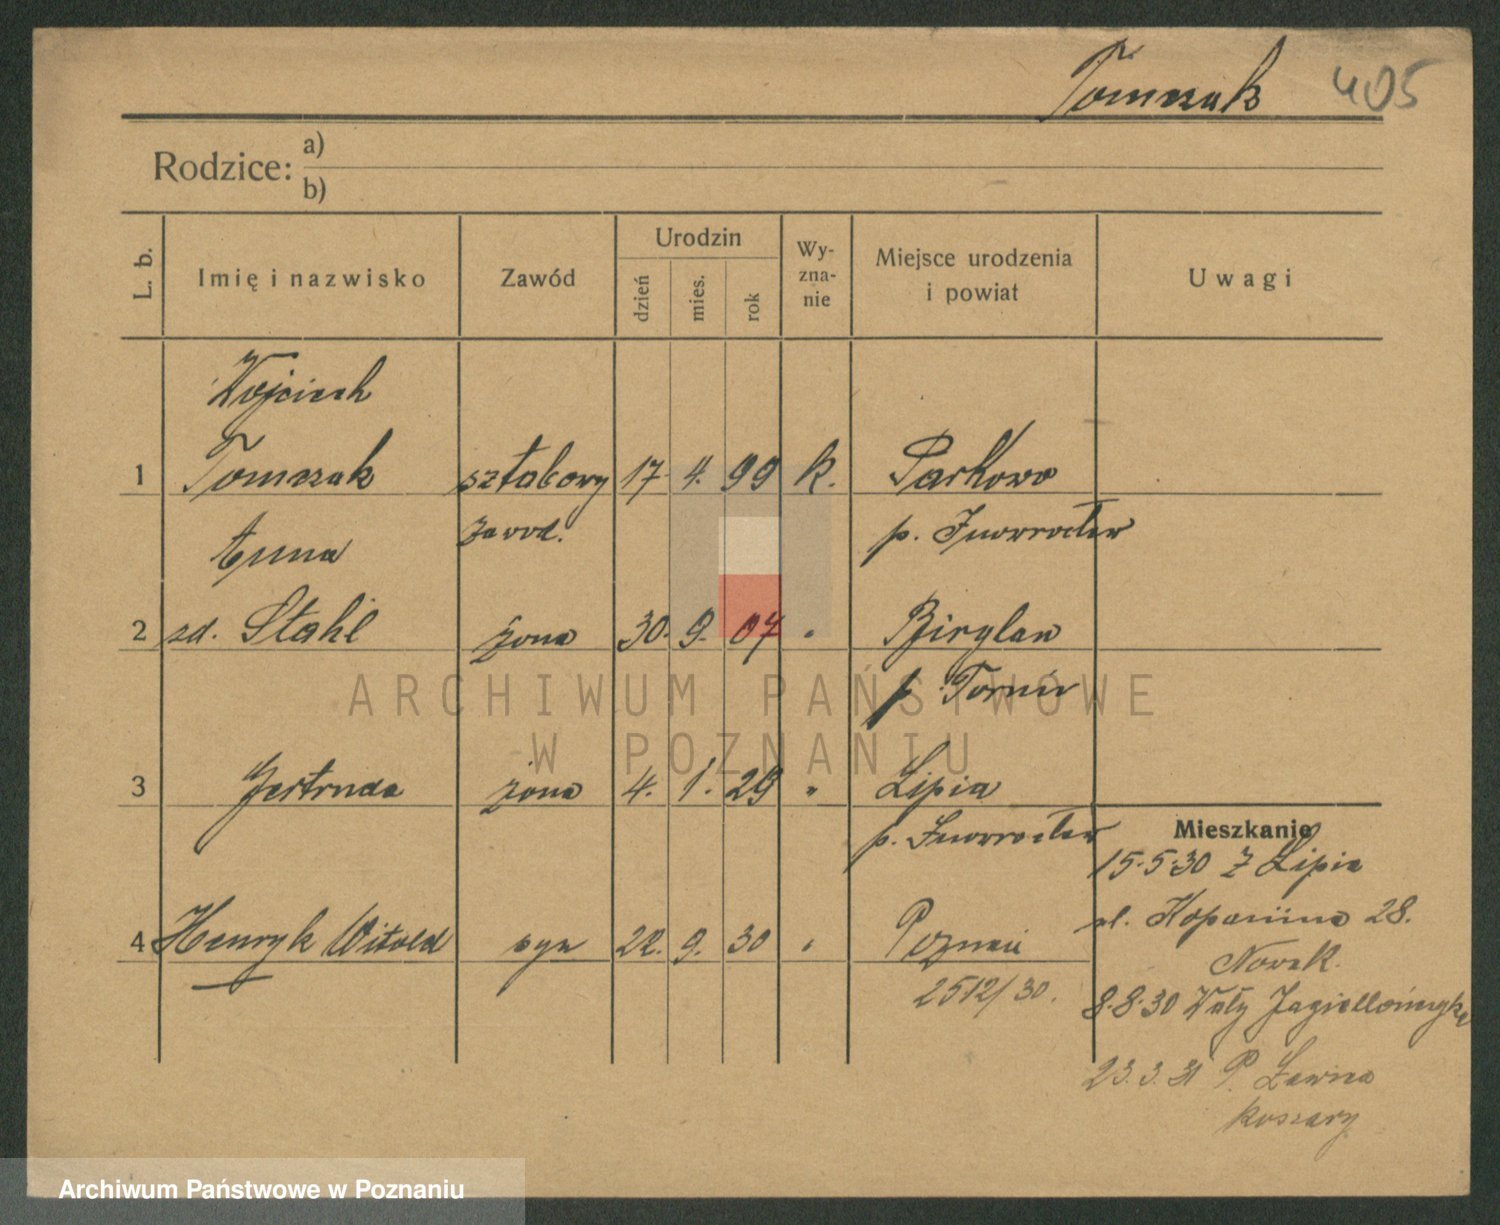 Tomczak 405
Rodzice: a)
b)
L. b.
Imię i nazwisko
Zawód
Urodzin
dzień
mies.
rok
Wy-
zna-
nie
Miejsce urodzenia
i powiat
Uwagi
Wojciech
1 Tomczak sztabowy 17. 4. 99 k. Parkowo
zawod. p. Inowrocław
Anna
2 zd. Stahl żona 30. 9. 07 " Birglau
p. Toruń
3 Gertruda żona 4. 1. 29 " Lipia
p. Inowrocław
4 Henryk Witold syn 22. 9. 30 " Poznań
2512/30.
Mieszkanie
15.5.30 z Lipia
ul. Kopanina 28.
Nowak.
8.8.30 Wały Jagiellońskie
23.3.31 P. Ławica
koszary
ARCHIWUM PAŃSTWOWE
W POZNANIU
Archiwum Państwowe w Poznaniu